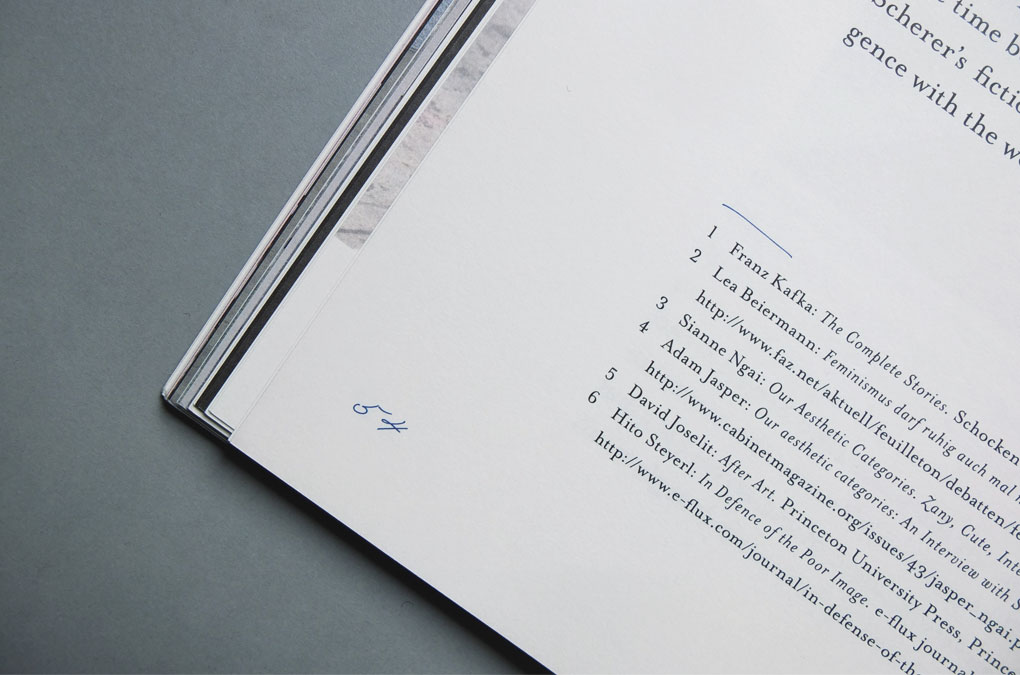 time b
Scherer's fictio
gence with the w
1 Franz Kafka: The Complete Stories. Schocken
2 Lea Beiermann: Feminismus darf ruhig auch mal
http://www.faz.net/aktuell/feuilleton/debatten/fe
3 Sianne Ngai: Our Aesthetic Categories. Zany, Cute, Inte
4 Adam Jasper: Our aesthetic categories: An Interview with S
http://www.cabinetmagazine.org/issues/43/jasper_ngai.p
5 David Joselit: After Art. Princeton University Press, Prince
6 Hito Steyerl: In Defence of the Poor Image. e-flux journal
http://www.e-flux.com/journal/in-defense-of-the
54